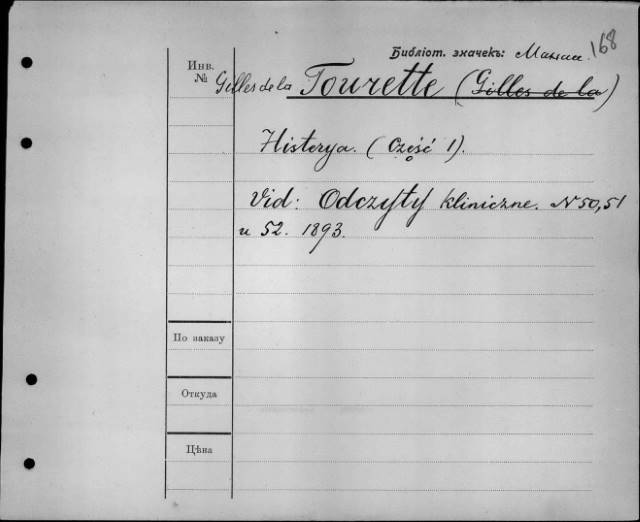 Библіот. значекъ: Маниш. 168
Инв. №
Gilles de la Tourette (Gilles de la)
Histerya. (Część 1).
Vid: Odczyty kliniczne. N 50, 51
и 52. 1893.
По заказу
Откуда
Цѣна